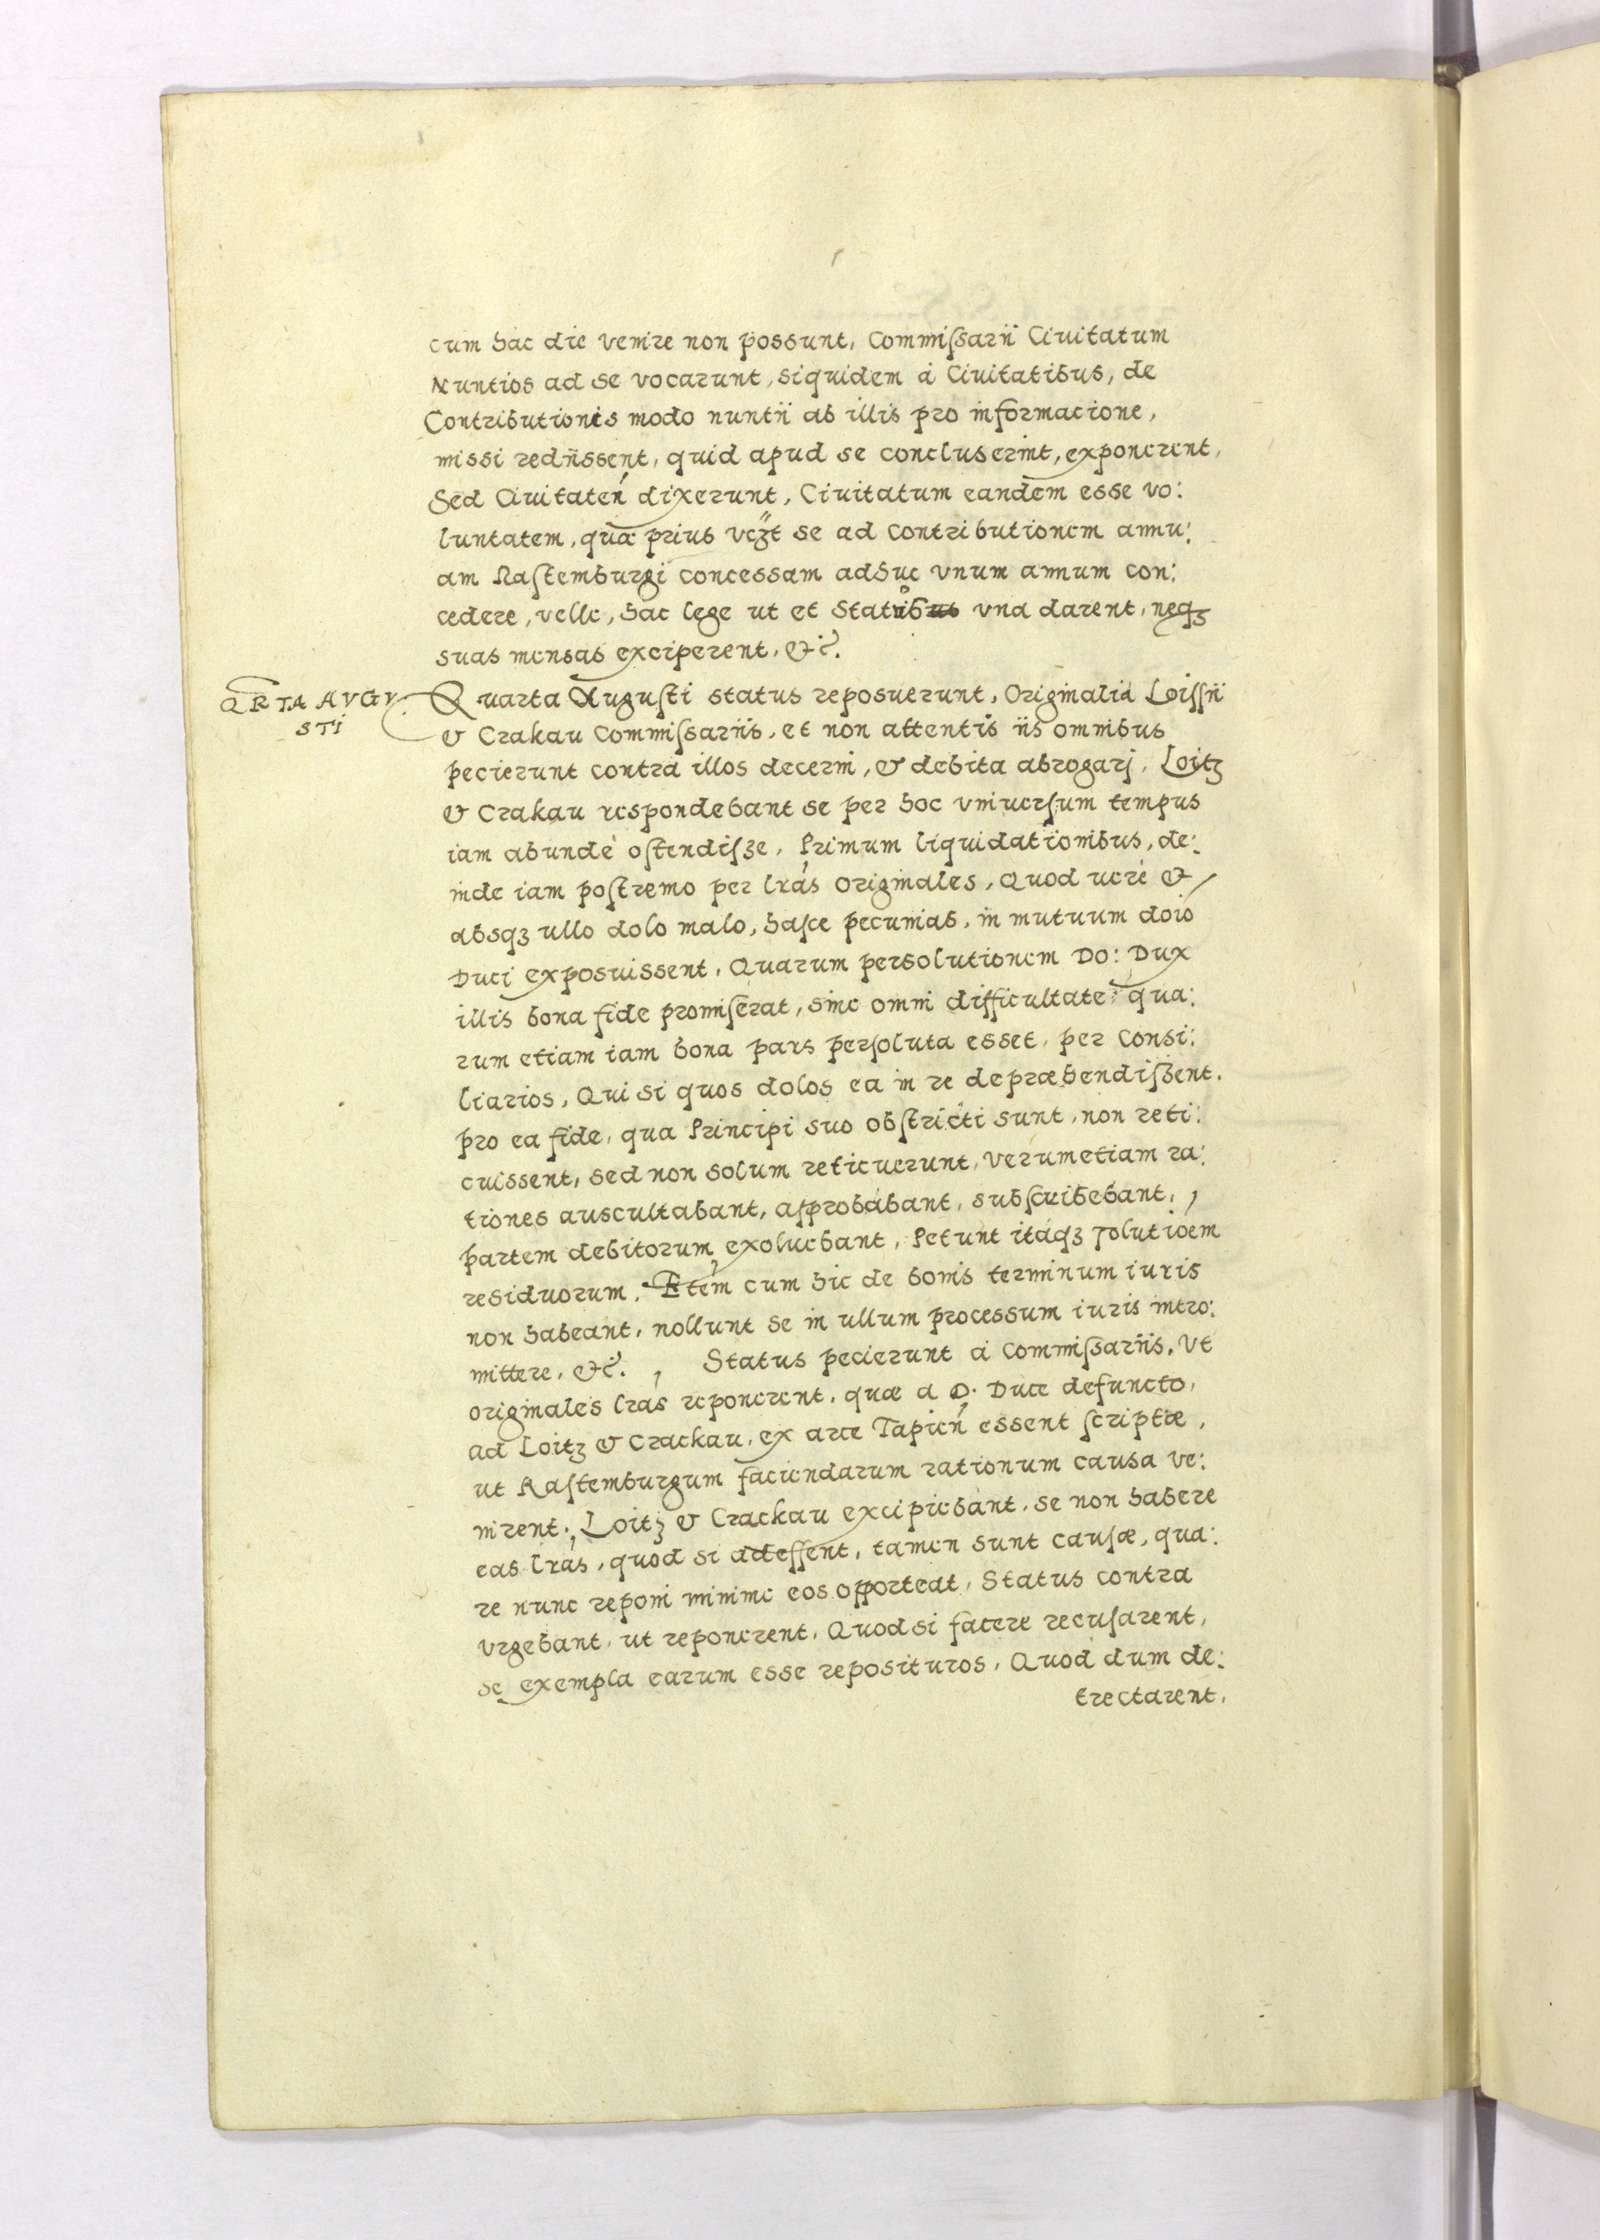 cum hac die venire non possunt, Commissarii Civitatum
Nuntios ad se vocarunt, siquidem à Civitatibus, de
Contributionis modo nuntii ab illis pro informacione,
missi rediissent, quid apud se concluserint, exponerent,
Sed Civitaten dixerunt, Civitatum eandem esse vo:
luntatem, qua prius vczt se ad contributionem annu:
am Rastemburgi concessam adhuc vnum annum con:
cedere, velle, hac lege ut et Status vna darent, neqз
suas mensas exciperent, &c.
QRTA AVGV
STI
Quarta Augusti status reposuerunt, Originalia Loissii
& Crakau Commissariis, et non attentis iis omnibus
pecierunt contra illos decerni, & debita abrogarj, Loitz
& Crakau respondebant se per hoc vniuersum tempus
iam abundè ostendisse, Primum liquidationibus, de:
inde iam postremo per lrás Originales, Quod uerè &
absqз ullo dolo malo, hasce pecunias, in mutuum doio
Duci exposuissent, Quarum persolutionem Do: Dux
illis bona fide promiserat, sine omni difficultate: qua:
rum etiam iam bona pars persoluta esset, per Consi:
liarios, Qui si quos dolos ea in re depræhendissent,
pro ea fide, qua Principi suo obstricti sunt, non reti:
cuissent, sed non solum reticuerunt, verumetiam ra:
tiones auscultabant, approbabant, subscribebant,
partem debitorum exoluebant, Petunt itáqз solutioem
residuorum. Etem cum hic de bonis terminum iuris
non habeant, nollunt se in ullum processum iuris intro:
mittere, &c. Status pecierunt à Commissariis, Vt
originales lrás reponerent, quæ a D. Duce defuncto,
ad Loitz & Crackau, ex arce Tapien essent scriptæ,
ut Rastemburgum faciendarum rationum causa ve:
nirent, Loitz & Crackau excipiebant, se non habere
eas lrás, quod si adessent, tamen sunt causæ, qua:
re nunc reponi minime eos opporteat, Status contra
vrgebant, ut reponerent, Quod si facere recusarent,
se exempla earum esse reposituros, Quod dum de:
trectarent,